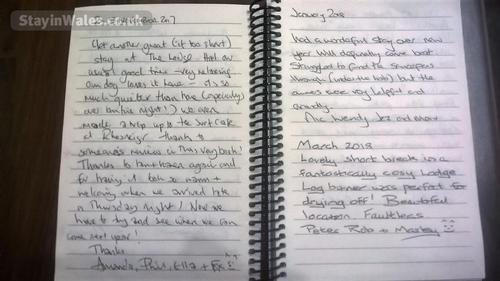 StayinWales.co.uk
2017
Yet another great (if too short)
stay at The House - Had an
usual good time - very relaxing
our dog loves it here - it's so
much quieter than home (especially
over bonfire night!) We even
made a trip up to the Surf Cafe
at Rhosneigr thanks to
someone's review in this very book!
Thanks to again and
for having it look so warm +
welcoming when we arrived late
on Thursday night! Now we
have to try and see when we can
come next year!
Thanks
Amanda, Phil, Ella + Fox
January 2018
Had a wonderful stay over new
year. Will definitely come back.
Struggled to find the saucepans
though (under the hob) but the
owners were very helpful and
friendly.
Mic Wendy Jez and
March 2018
Lovely short break in a
fantastically cosy Lodge
Log burner was perfect for
drying off! Beautiful
location. Faultless
Peter Rob + Marley